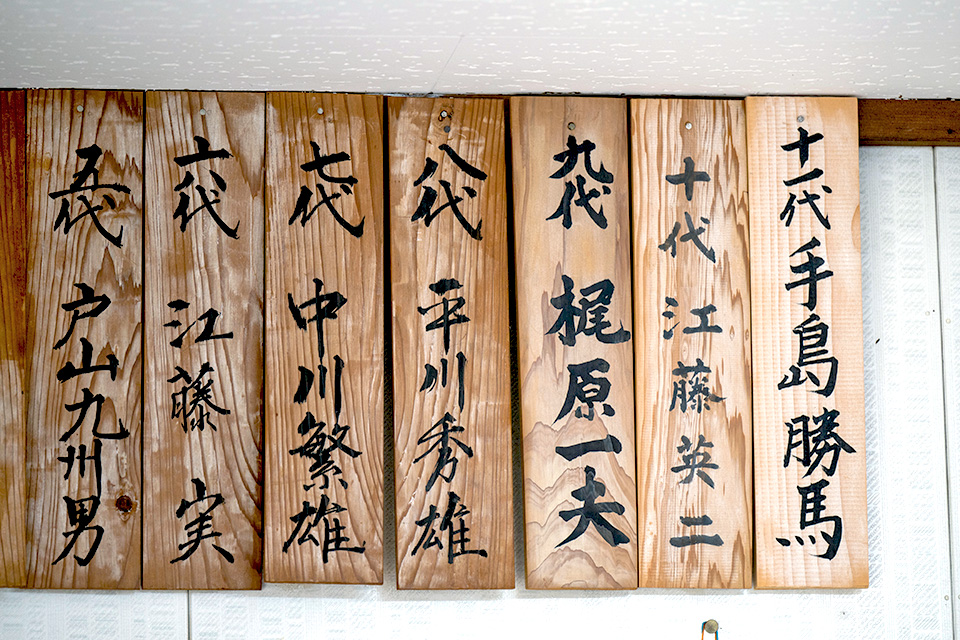 十一代 手島勝馬
十代 江藤英二
九代 梶原一夫
八代 平川秀雄
七代 中川繁雄
六代 江藤実
五代 戸山九州男